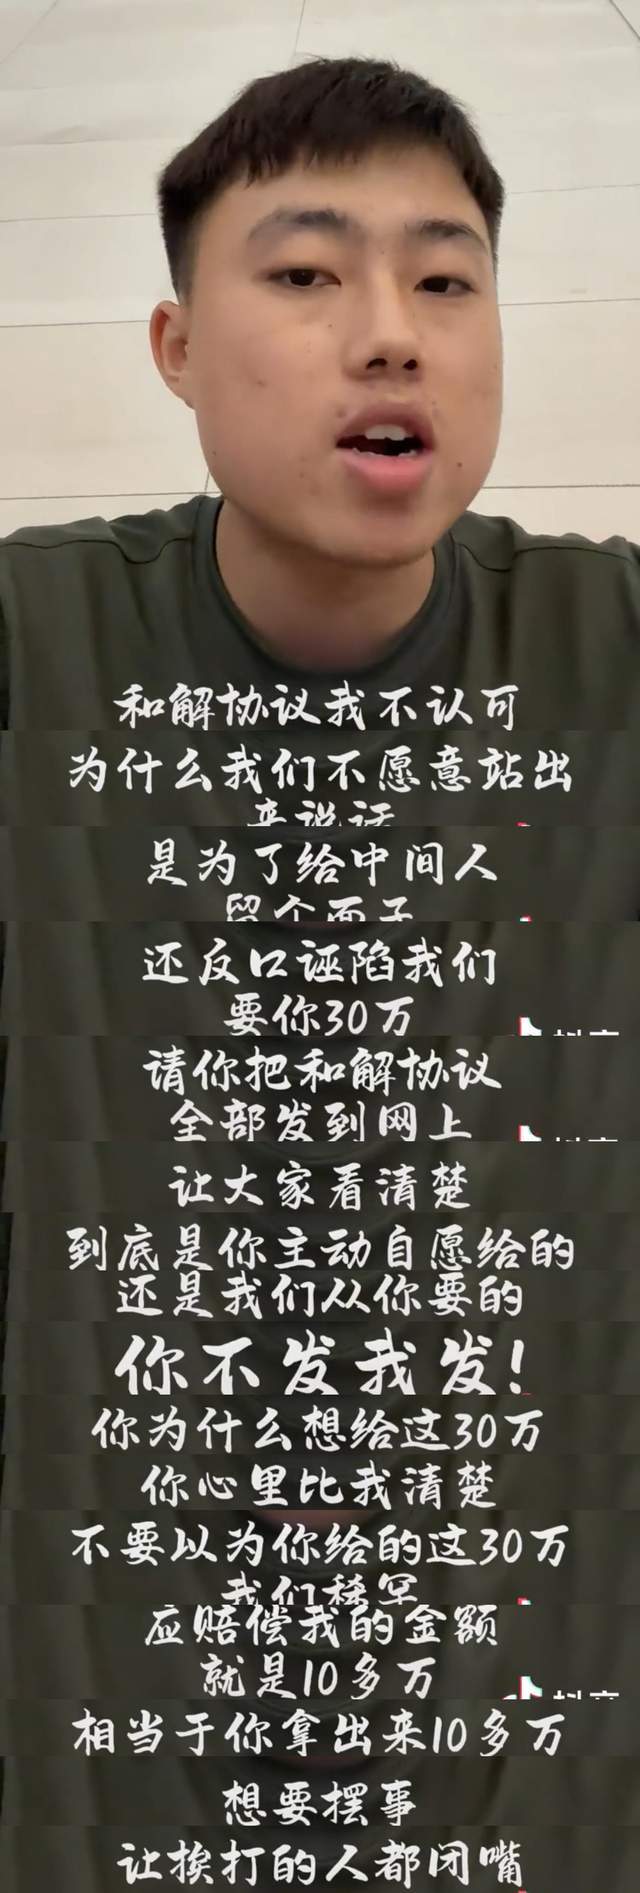 和解协议我不认可
为什么我们不愿意站出
来说话
是为了给中间人
留个面子
还反口诬陷我们
要你30万
请你把和解协议
全部发到网上
让大家看清楚
到底是你主动自愿给的
还是我们从你要的
你不发我发!
你为什么想给这30万
你心里比我清楚
不要以为你给的这30万
我们稀罕
应赔偿我的金额
就是10多万
相当于你拿出来10多万
想要摆事
让挨打的人都闭嘴